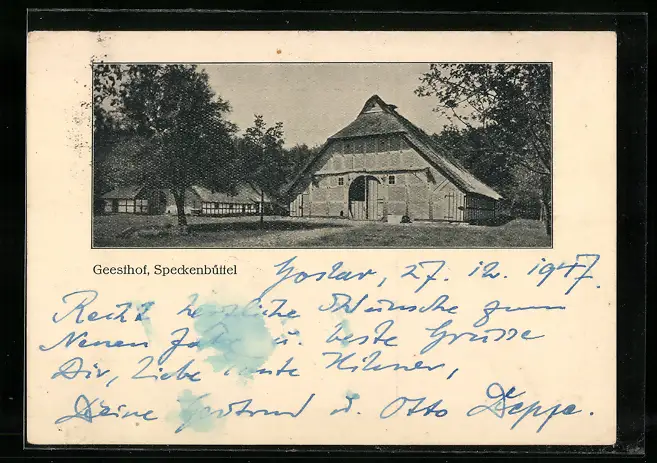 Geesthof, Speckenbüttel
Goslar, 27. 12. 1947.
Recht herzliche Wünsche zum
Neuen Jahr u. beste Grüsse
Dir, liebe Tante Hilmer,
Deine Gertrud u. Otto Deppe.